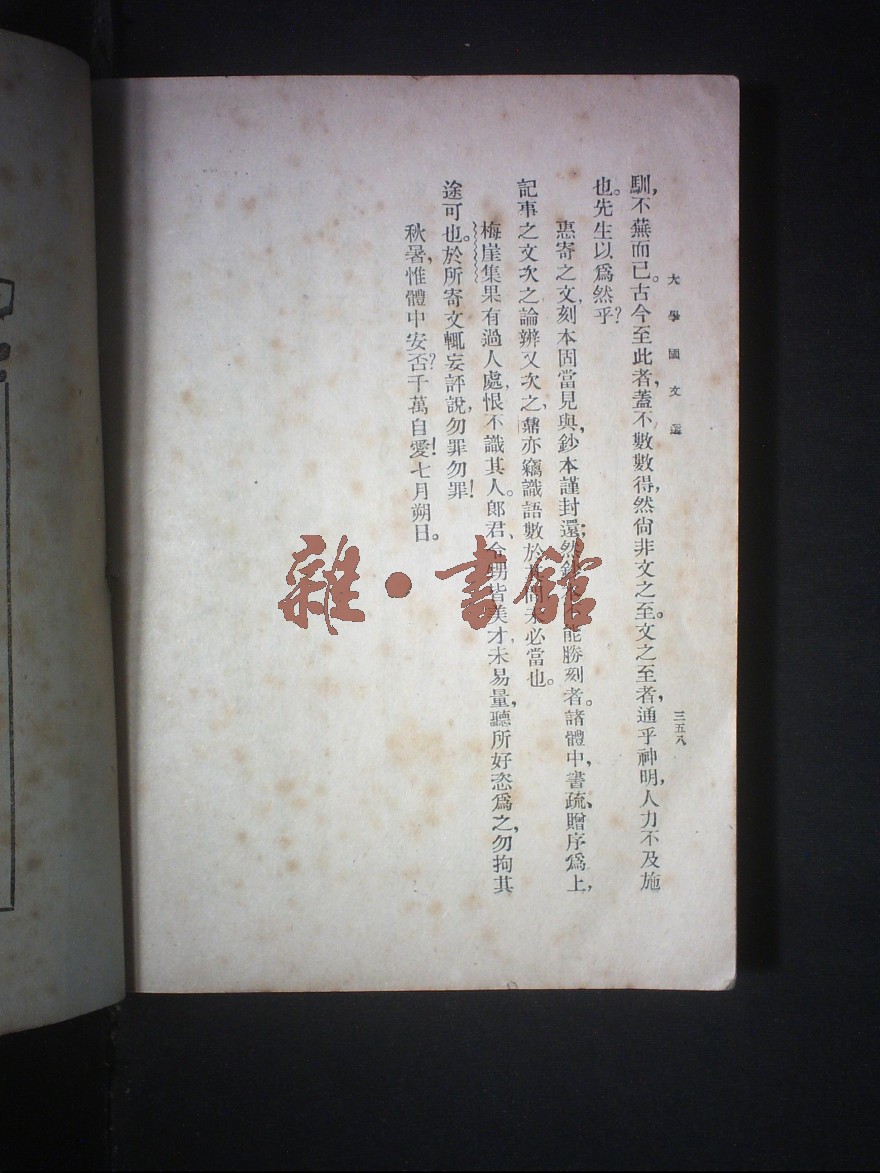 大學國文選
三五八
馴，不蕪而已。古今至此者，蓋不數數得，然尙非文之至。文之至者，通乎神明，人力不及施
也。先生以爲然乎？
惠寄之文，刻本固當見與，鈔本謹封還；然鈔本不能勝刻者。諸體中，書疏、贈序爲上，
記事之文次之，論辨又次之，鼐亦竊識語數於其間，未必當也。
梅崖集果有過人處，恨不識其人。郎君、令甥皆美才，未易量，聽所好恣爲之，勿拘其
途可也。於所寄文輒妄評說，勿罪勿罪！
秋暑，惟體中安否？千萬自愛！七月朔日。
雜·書館